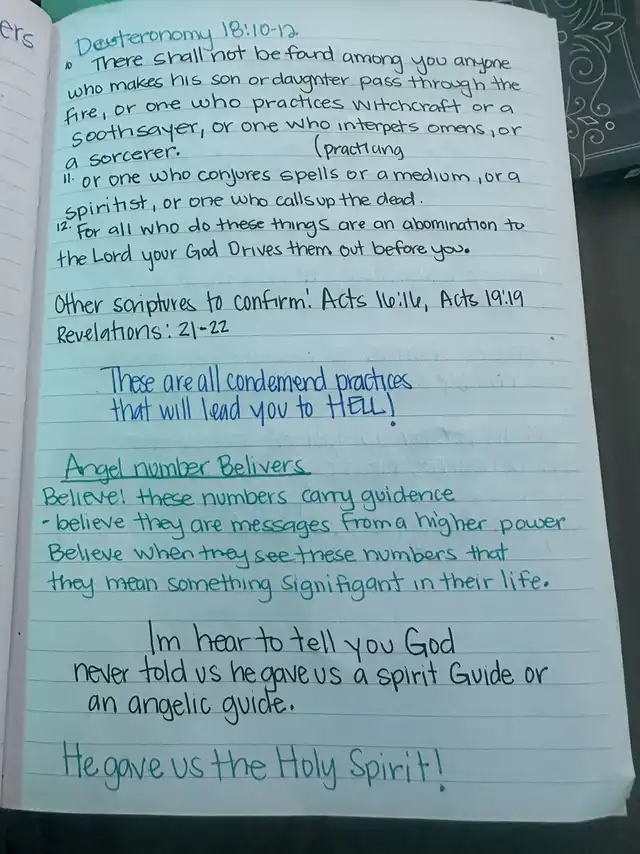 ers
Deuteronomy 18:10-12
10 There shall not be found among you anyone
who makes his son or daughter pass through the
fire, or one who practices witchcraft or a
soothsayer, or one who interpets omens, or
a sorcerer. (practicing
11. or one who conjures spells or a medium, or a
spiritist, or one who calls up the dead.
12. For all who do these things are an abomination to
the Lord your God Drives them out before you.
Other scriptures to confirm: Acts 16:16, Acts 19:19
Revelations: 21-22
These are all condemend practices
that will lead you to HELL!
Angel number Belivers
Believe! these numbers carry guidence
- believe they are messages from a higher power
Believe when they see these numbers that
they mean something signifigant in their life.
Im hear to tell you God
never told us he gave us a spirit Guide or
an angelic guide.
He gave us the Holy Spirit!